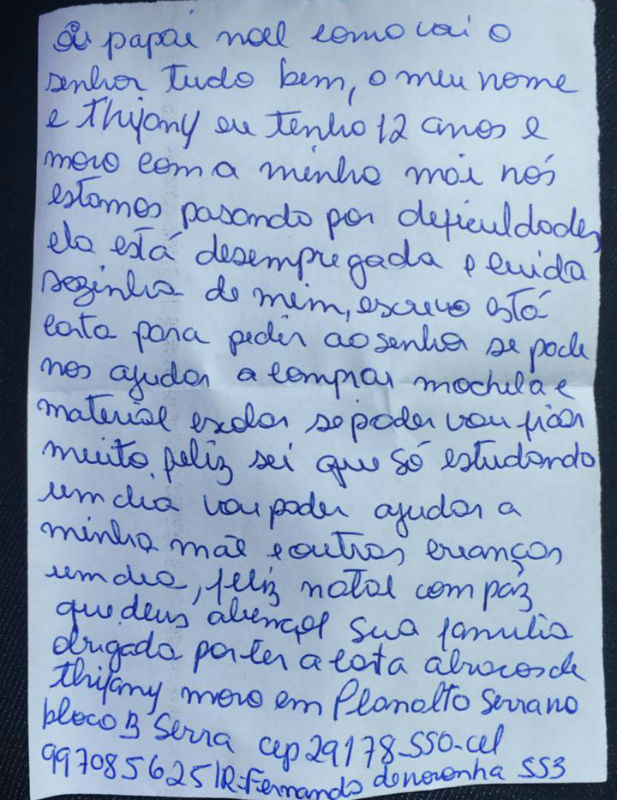 Oi papai noel como vai o
senhor tudo bem, o meu nome
e thifany eu tenho 12 anos e
moro com a minha mãe nós
estamos pasando por deficuldades,
ela está desempregada e cuida
sozinha de mim, escrevo está
carta para pedir ao senhor se pode
nos ajudar a comprar mochila e
material escolar se poder vou ficar
muito feliz sei que só estudando
um dia vou poder ajudar a
minha mãe e outras crianças
um dia, feliz natal com paz
que deus abençoe sua familia
obrigada por ler a carta abraços de
thifany moro em Planalto Serrano
bloco B Serra cep 29178-550-cel
997085625 | R-Fernando de noronha 553